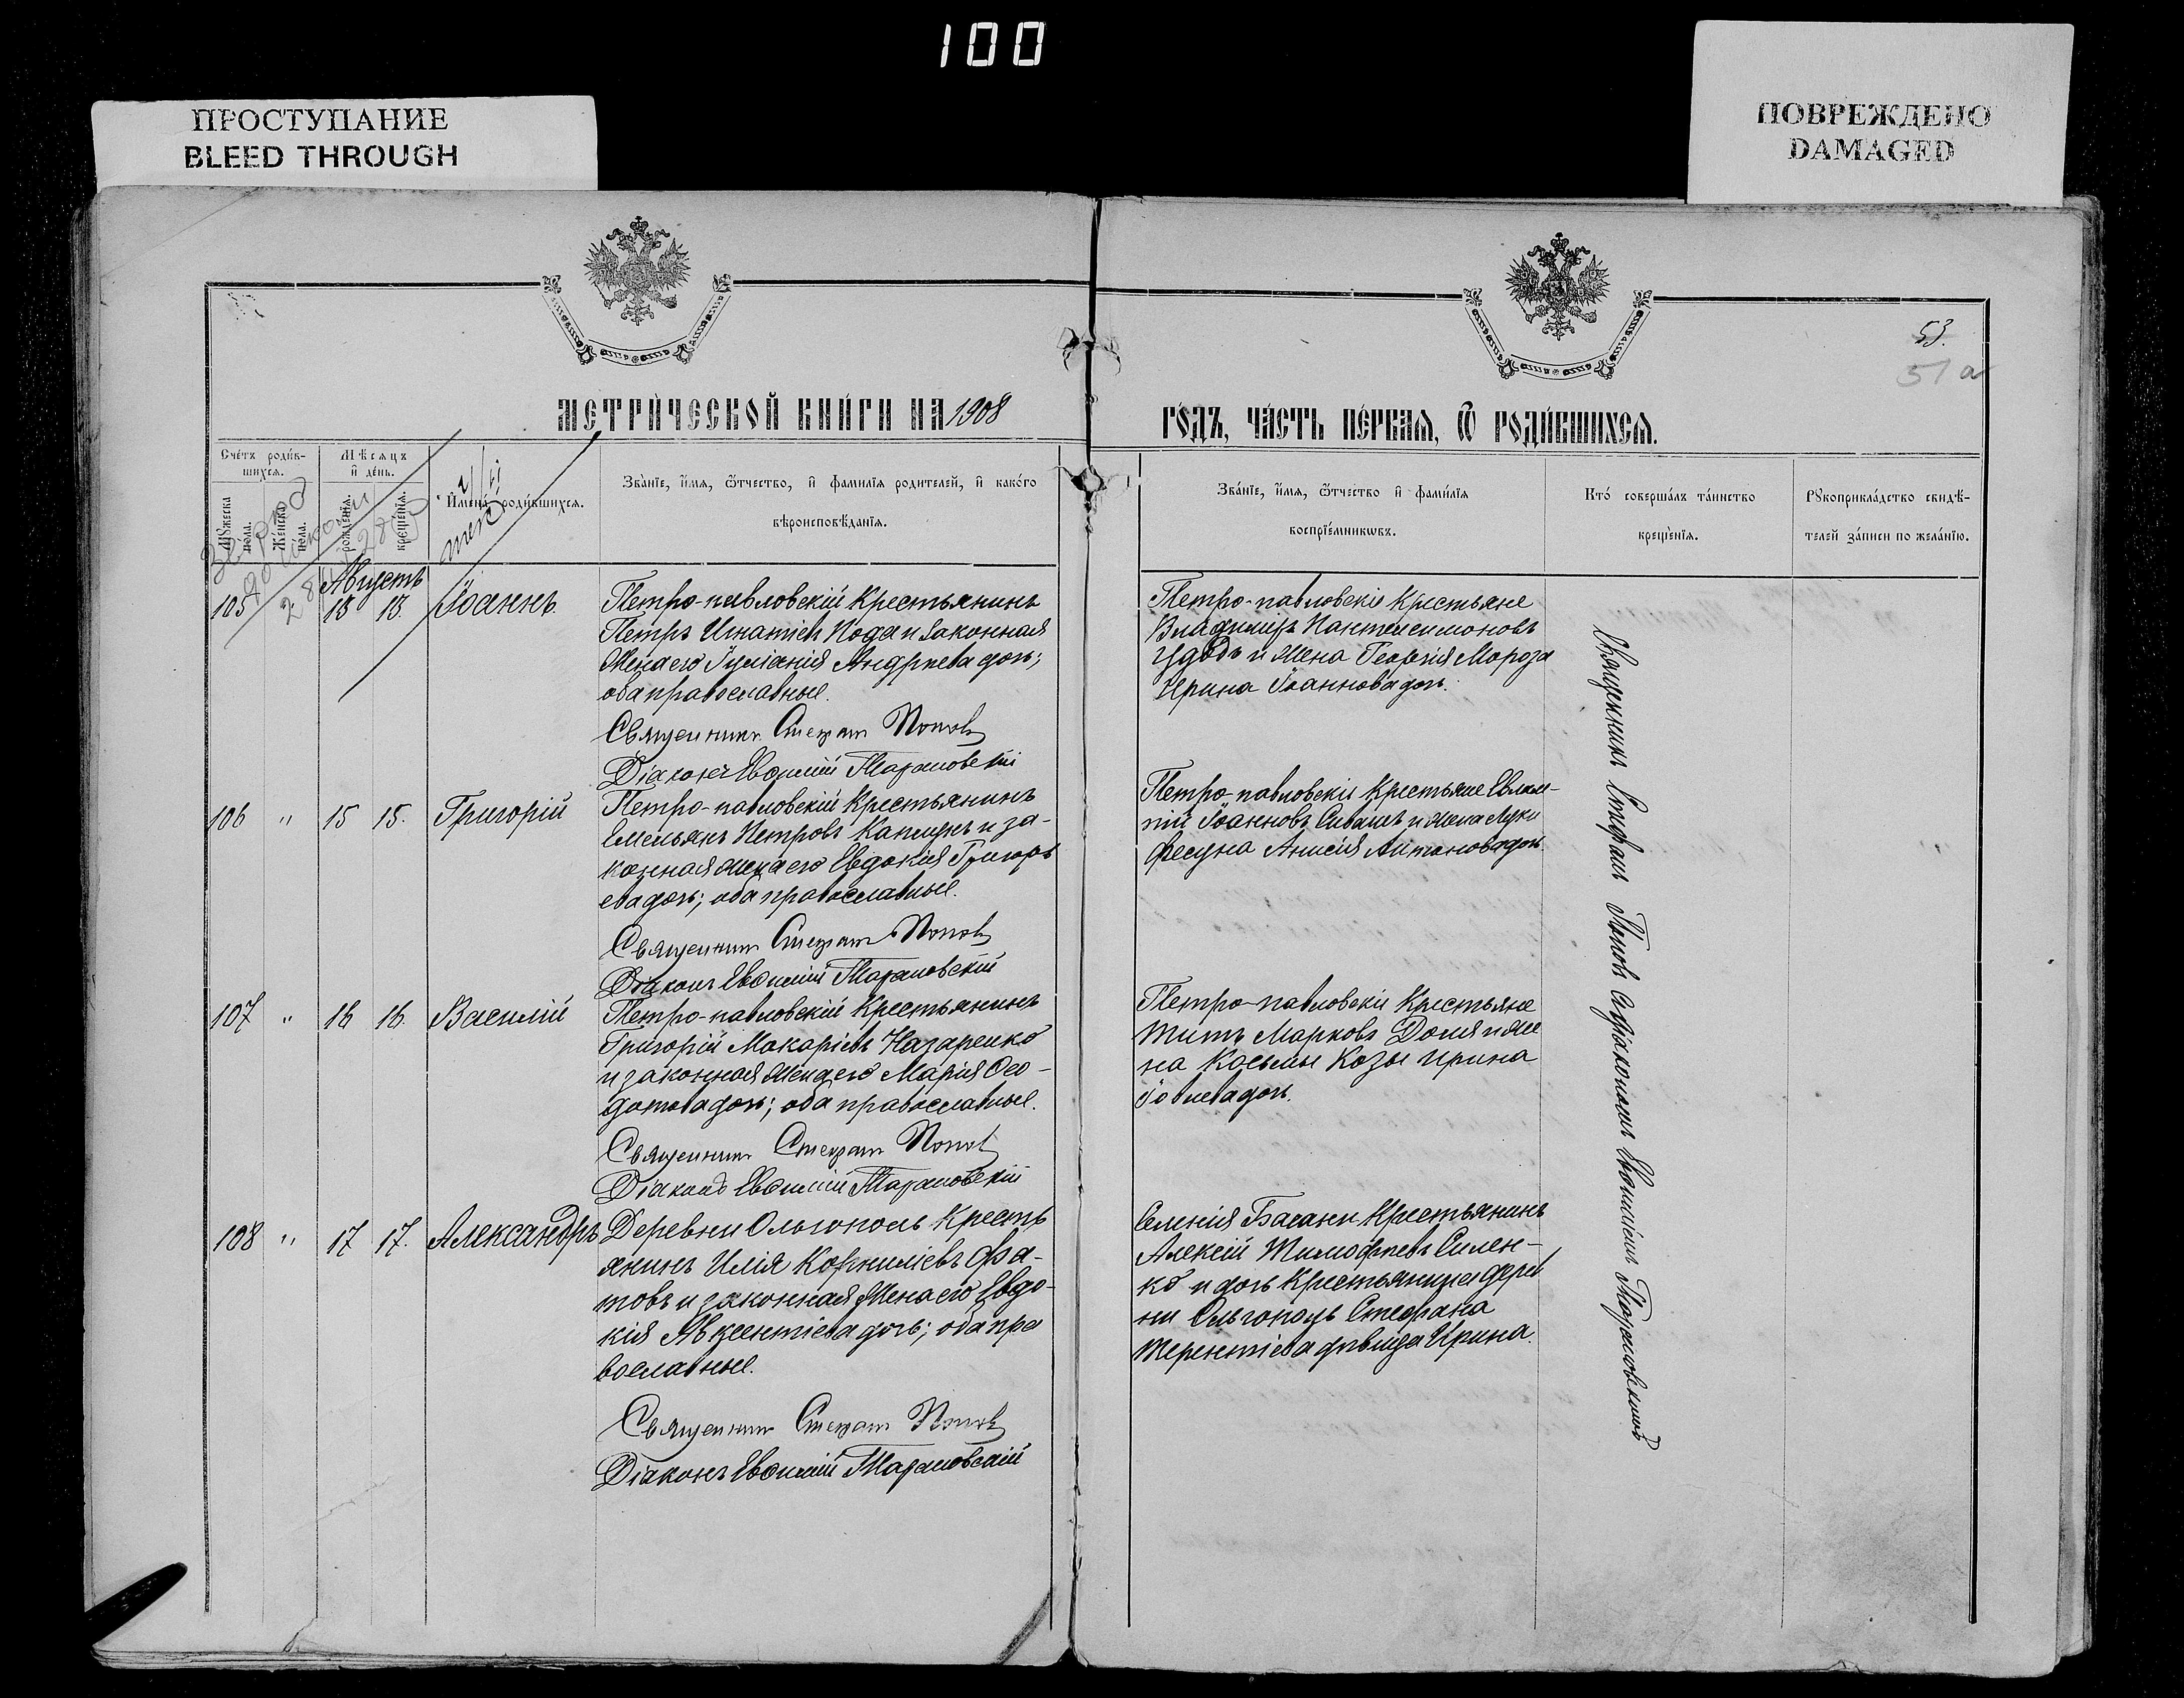 100
ПРОСТУПАНИЕ
BLEED THROUGH
ПОВРЕЖДЕНО
DAMAGED
53.
51 а
МЕТРИ́ЧЕСКОЙ КНИ́ГИ НА 1908
ГО́ДЪ, ЧА́СТЬ ПЕ́РВАЯ, Ѿ РОДИ́ВШИХСЯ.
Сче́тъ роди́в-
шихся.
Мѣсяцъ
и де́нь.
Мꙋжеска
по́ла.
Же́нска
по́ла.
рожде́нія.
креще́нія.
Имена́ роди́вшихся.
Зва́ніе, и́мя, ѻ́тчество, и фами́лія родителей, и како́го
вѣроисповѣ́данія.
Зва́ніе, и́мя, ѻ́тчество и фами́лія
воспріе́мникѡвъ.
Кто́ соверша́лъ та́инство
креще́нія.
Рꙋкоприкла́дство свидѣ́-
телей за́писи по жела́нію.
Августъ
105 13 13. Іоаннъ.
Петро-павловскій крестьянинъ
Петръ Игнатіевъ Кода и законная
жена его Іуліанія Андреева дочь;
оба православные.
Священникъ Стефанъ Поповъ
Діаконъ Евѳимій Тарановскій
Петро-павловскіе крестьяне
Владиміръ Пантелеимоновъ
Удодъ и жена Георгія Мороза
Ирина Іоаннова дочь.
106 " 15 15. Григорій
Петро-павловскій крестьянинъ
Емельянъ Петровъ Капшукъ и за-
конная жена его Евдокія Григорь
ева дочь; оба православные.
Священникъ Стефанъ Поповъ
Діаконъ Евѳимій Тарановскій
Петро-павловскіе крестьяне Евлам-
пій Іоанновъ Сивашъ и жена Луки
Фесуна Анисія Антонова дочь.
107 " 16 16. Василій
Петро-павловскій крестьянинъ
Григорій Макаріевъ Назаренко
и законная жена его Марія Ѳео-
дотова дочь; оба православные.
Священникъ Стефанъ Поповъ
Діаконъ Евѳимій Тарановскій
Петро-павловскіе крестьяне
Титъ Марковъ Доля и же
на Косьмы Козы Ирина
Іовлева дочь.
108 " 17 17. Александръ
Деревни Ольгополь крестъ
янинъ Илія Корниліевъ Фа-
товъ и законная жена его Евдо-
кія Авксентіева дочь; оба пра
вославные.
Священникъ Стефанъ Поповъ
Діаконъ Евѳимій Тарановскій
крестьянинъ
Алексій Тимоѳеевъ Силен-
ко и дочь крестьянина дерев
ни Ольгополь Стефана
Терентіева дѣвица Ирина.
Священникъ Стефанъ Поповъ съ діакономъ Евѳиміемъ Тарановскимъ